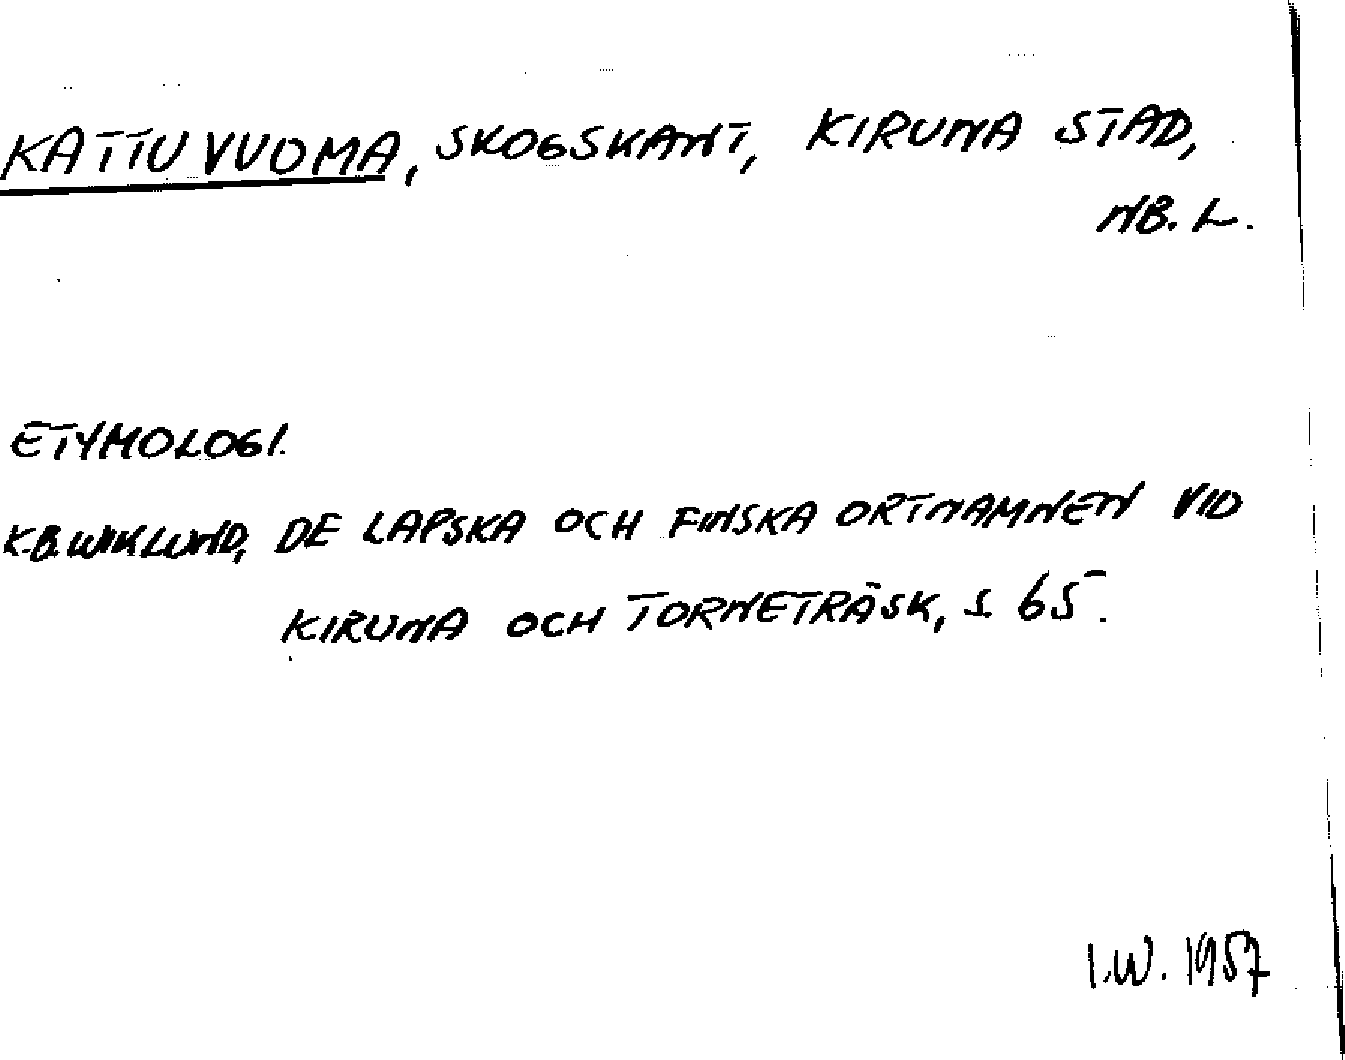 KATTUVUOMA, SKOGSKANT, KIRUNA STAD,
NB. L.
ETYMOLOGI.
K.B. WIKLUND, DE LAPSKA OCH FINSKA ORTNAMNEN VID
KIRUNA OCH TORNETRÄSK, S 65.
I.W. 1957